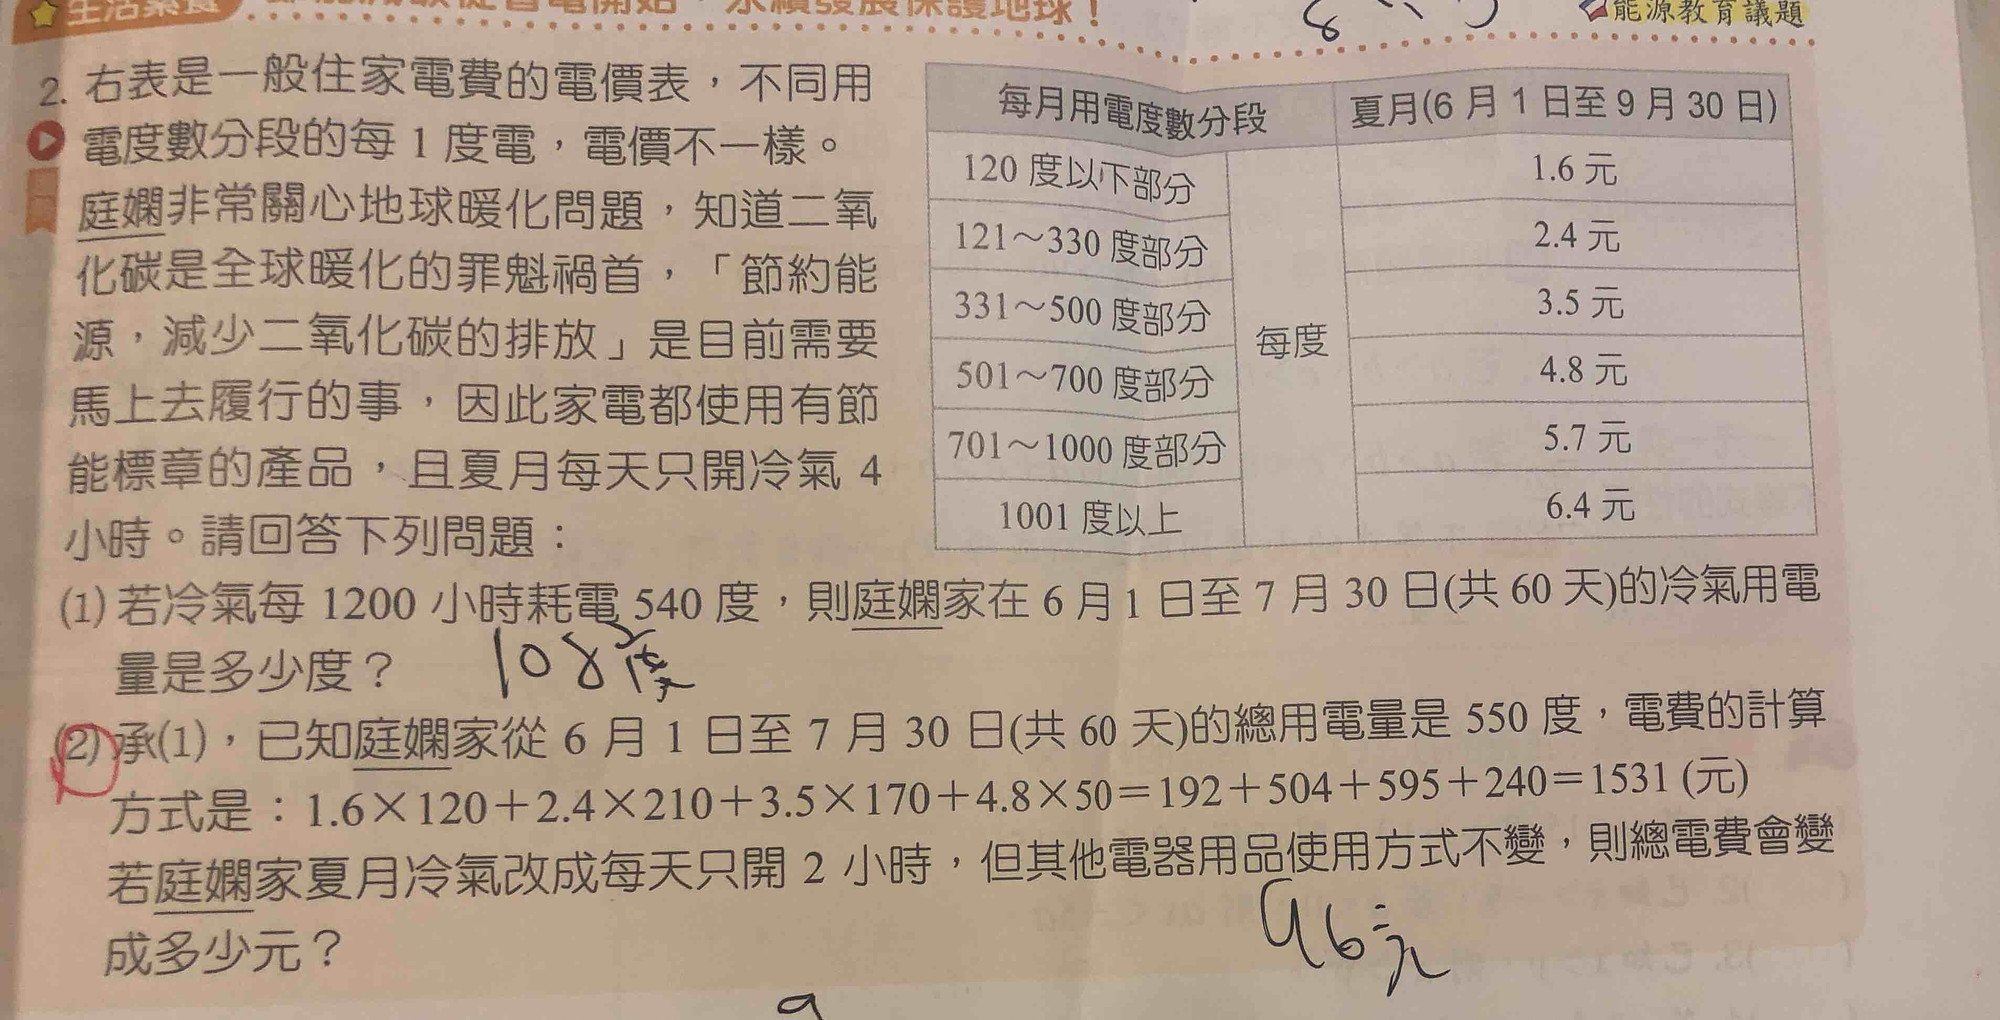 生活素養
永續發展保護地球！
能源教育議題
2. 右表是一般住家電費的電價表，不同用
電度數分段的每 1 度電，電價不一樣。
庭嫻非常關心地球暖化問題，知道二氧
化碳是全球暖化的罪魁禍首，「節約能
源，減少二氧化碳的排放」是目前需要
馬上去履行的事，因此家電都使用有節
能標章的產品，且夏月每天只開冷氣 4
小時。請回答下列問題：
每月用電度數分段 夏月(6 月 1 日至 9 月 30 日)
120 度以下部分 1.6 元
121～330 度部分 2.4 元
331～500 度部分 3.5 元
每度
501～700 度部分 4.8 元
701～1000 度部分 5.7 元
1001 度以上 6.4 元
(1) 若冷氣每 1200 小時耗電 540 度，則庭嫻家在 6 月 1 日至 7 月 30 日(共 60 天)的冷氣用電
量是多少度？ 108度
(2) 承(1)，已知庭嫻家從 6 月 1 日至 7 月 30 日(共 60 天)的總用電量是 550 度，電費的計算
方式是：1.6×120＋2.4×210＋3.5×170＋4.8×50＝192＋504＋595＋240＝1531 (元)
若庭嫻家夏月冷氣改成每天只開 2 小時，但其他電器用品使用方式不變，則總電費會變
成多少元？ 96元